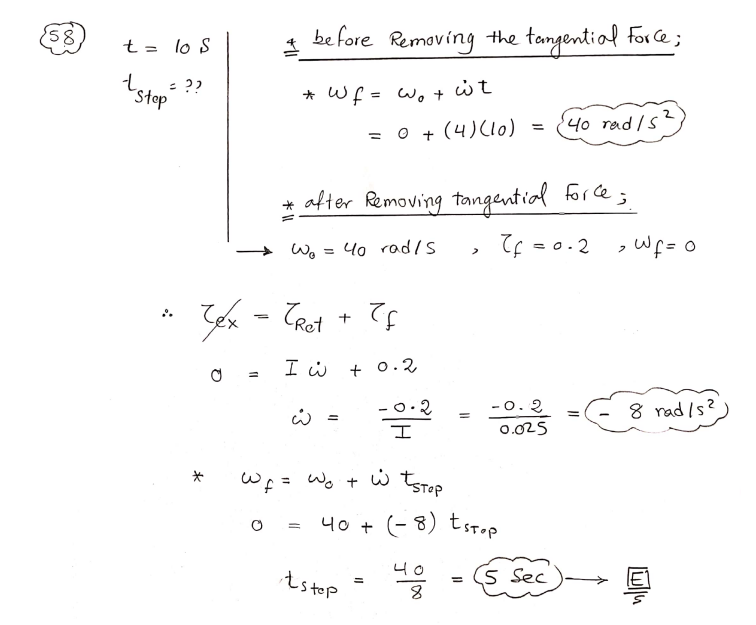 58
t = 10 S
t_Stop = ??
* before Removing the tangential Force;
* ωf = ω₀ + ω̇t
= 0 + (4)(10) = 40 rad/s²
* after Removing tangential Force;
→ ω₀ = 40 rad/s , τf = 0.2 , ωf = 0
∴ τex = τRot + τf
0 = I ω̇ + 0.2
ω̇ = -0.2/I = -0.2/0.025 = - 8 rad/s²
* ωf = ω₀ + ω̇ t_STOP
0 = 40 + (-8) t_STOP
t_stop = 40/8 = 5 Sec → E